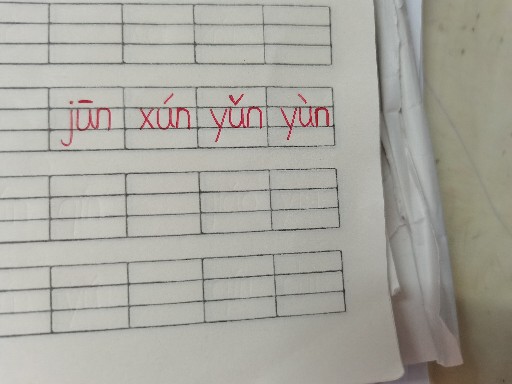 jūn xún yǔn yùn